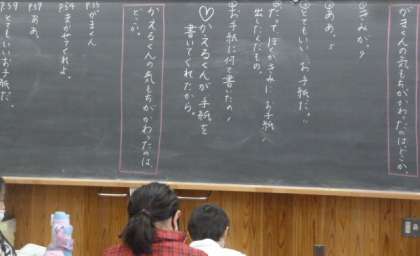 がまくんの気もちがかわったのはどこか。
①きみが？
②ああ。
③とてもいいお手紙だ。
④だって、ぼくがきみにお手紙
出したんだもの。
お手紙に何て書いたの？
♡かえるくんが手紙を
書いてくれたから。
かえるくんの気もちがかわったのは
どこか。
P35 がまくん
P36 まかせてくれよ。
P39 ああ。
P39 とてもいいお手紙だ。